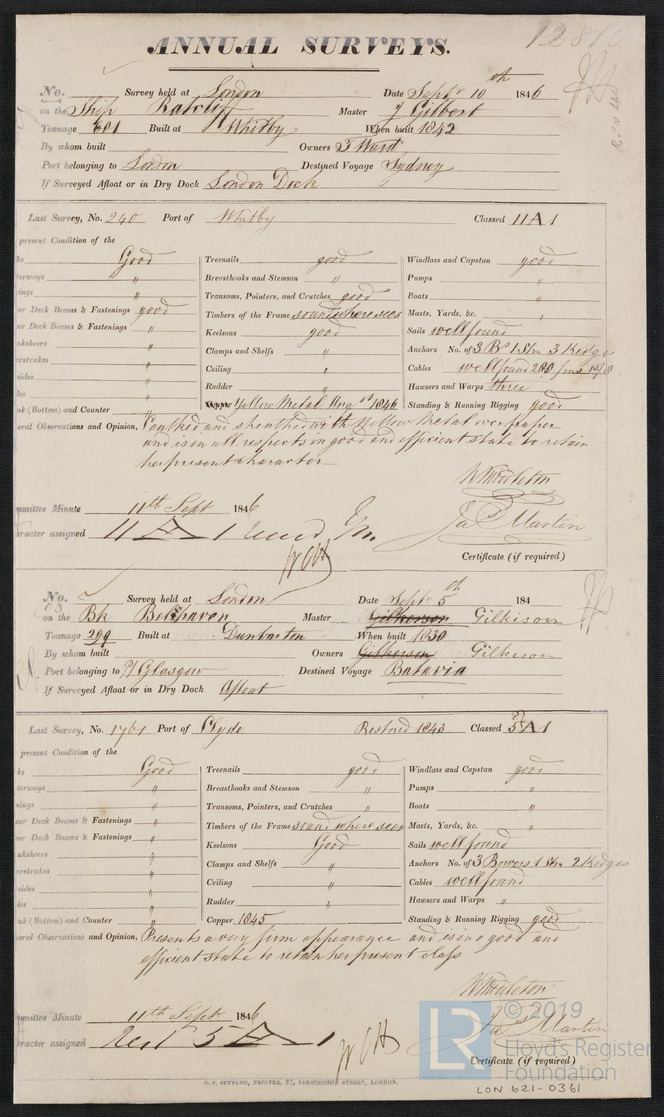 ANNUAL SURVEYS.
12810
No. Survey held at London Date Septr 10th 1846
on the Ship Ratcliff Master J Gilbert
Tonnage Built at Whitby When built 1842
By whom built Owners T Ward
Port belonging to London Destined Voyage Sydney
If Surveyed Afloat or in Dry Dock London Dock
Last Survey, No. 240 Port of Whitby Classed 11 A 1
present Condition of the
Good Treenails good Windlass and Capstan good
terways " Breasthooks and Stemson " Pumps "
ings " Transoms, Pointers, and Crutches good Boats "
er Deck Beams & Fastenings good Timbers of the Frame sound where seen Masts, Yards, &c. "
er Deck Beams & Fastenings " Keelsons good Sails well found
nksheers " Clamps and Shelfs " Anchors No. of 3 Br 1 Stm 3 Kedges
erstrakes " Ceiling " Cables well found 280
sides " Rudder " Hawsers and Warps three
nk (Bottom) and Counter " Yellow Metal 1846 Standing & Running Rigging good
eral Observations and Opinion, Caulked and sheathed with Yellow Metal over paper
and is in all respects in good and efficient state to retain
her present character
W Middleton
mmittee Minute 11th Sept 1846
Jas Martin
racter assigned 11 A 1
Certificate (if required)
No. Survey held at London Date Septr 5th 184
on the Bk Belhaven Master Gilkerson Gilkison
Tonnage 299 Built at Dunbarton When built 1830
By whom built Owners Gilkerson Gilkison
Port belonging to Glasgow Destined Voyage Batavia
If Surveyed Afloat or in Dry Dock Afloat
Last Survey, No. 1761 Port of Clyde Restored 1843 Classed 5 A 1
present Condition of the
ks Good Treenails good Windlass and Capstan good
terways " Breasthooks and Stemson " Pumps "
ings " Transoms, Pointers, and Crutches " Boats "
er Deck Beams & Fastenings " Timbers of the Frame sound where seen Masts, Yards, &c. "
er Deck Beams & Fastenings " Keelsons Good Sails well found
nksheers " Clamps and Shelfs " Anchors No. of 3 Bowers 1 Stm 2 Kedges
erstrakes " Ceiling " Cables well found
sides " Rudder " Hawsers and Warps "
nk (Bottom) and Counter " Copper 1845 Standing & Running Rigging good
eral Observations and Opinion, Presents a very firm appearance and is in a good and
efficient state to retain her present class
W Middleton
mmittee Minute 11th Sept 1846
Jas Martin
racter assigned Rest 5 A 1
Certificate (if required)
C. F. SEYFANG, PRINTER, 57, FARRINGDON STREET, LONDON.
© 2019
LR
Lloyd's Register
Foundation
LON 621-0361